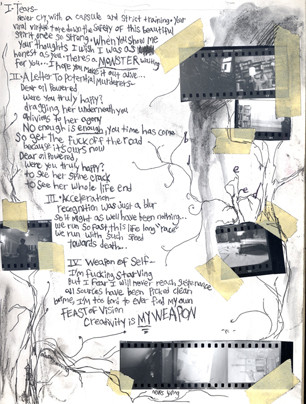 I-Tears-
never cry, with a capsule and strict training. Your
viral virtue threatens the safety of this beautiful
spirit once so strong. When you show me
your thoughts I wish I was as
honest as you. Theres a MONSTER waiting
for you... I hope you make it out alive...
II-A Letter To Potential murderers-
Dear oil Powered
were you truly happy?
dragging her underneath you
oblivious to her agony
No enough is enough, you time has come
so get the Fuck off the road
because its ours now
Dear oil Powered,
were you truly happy?
to see her spine crack
to see her whole life end
III-Acceleration-
recognition was just a blur
so it might as well have been nothing...
we run so fast, this life long "race"
we run with such speed
towards death...
IV Weapon of Self-
I'm fucking starving
but I fear I will never reach
all sources have been picked clean
I'm too to ever find my own
FEAST of VISION
Creativity is MY WEAPON